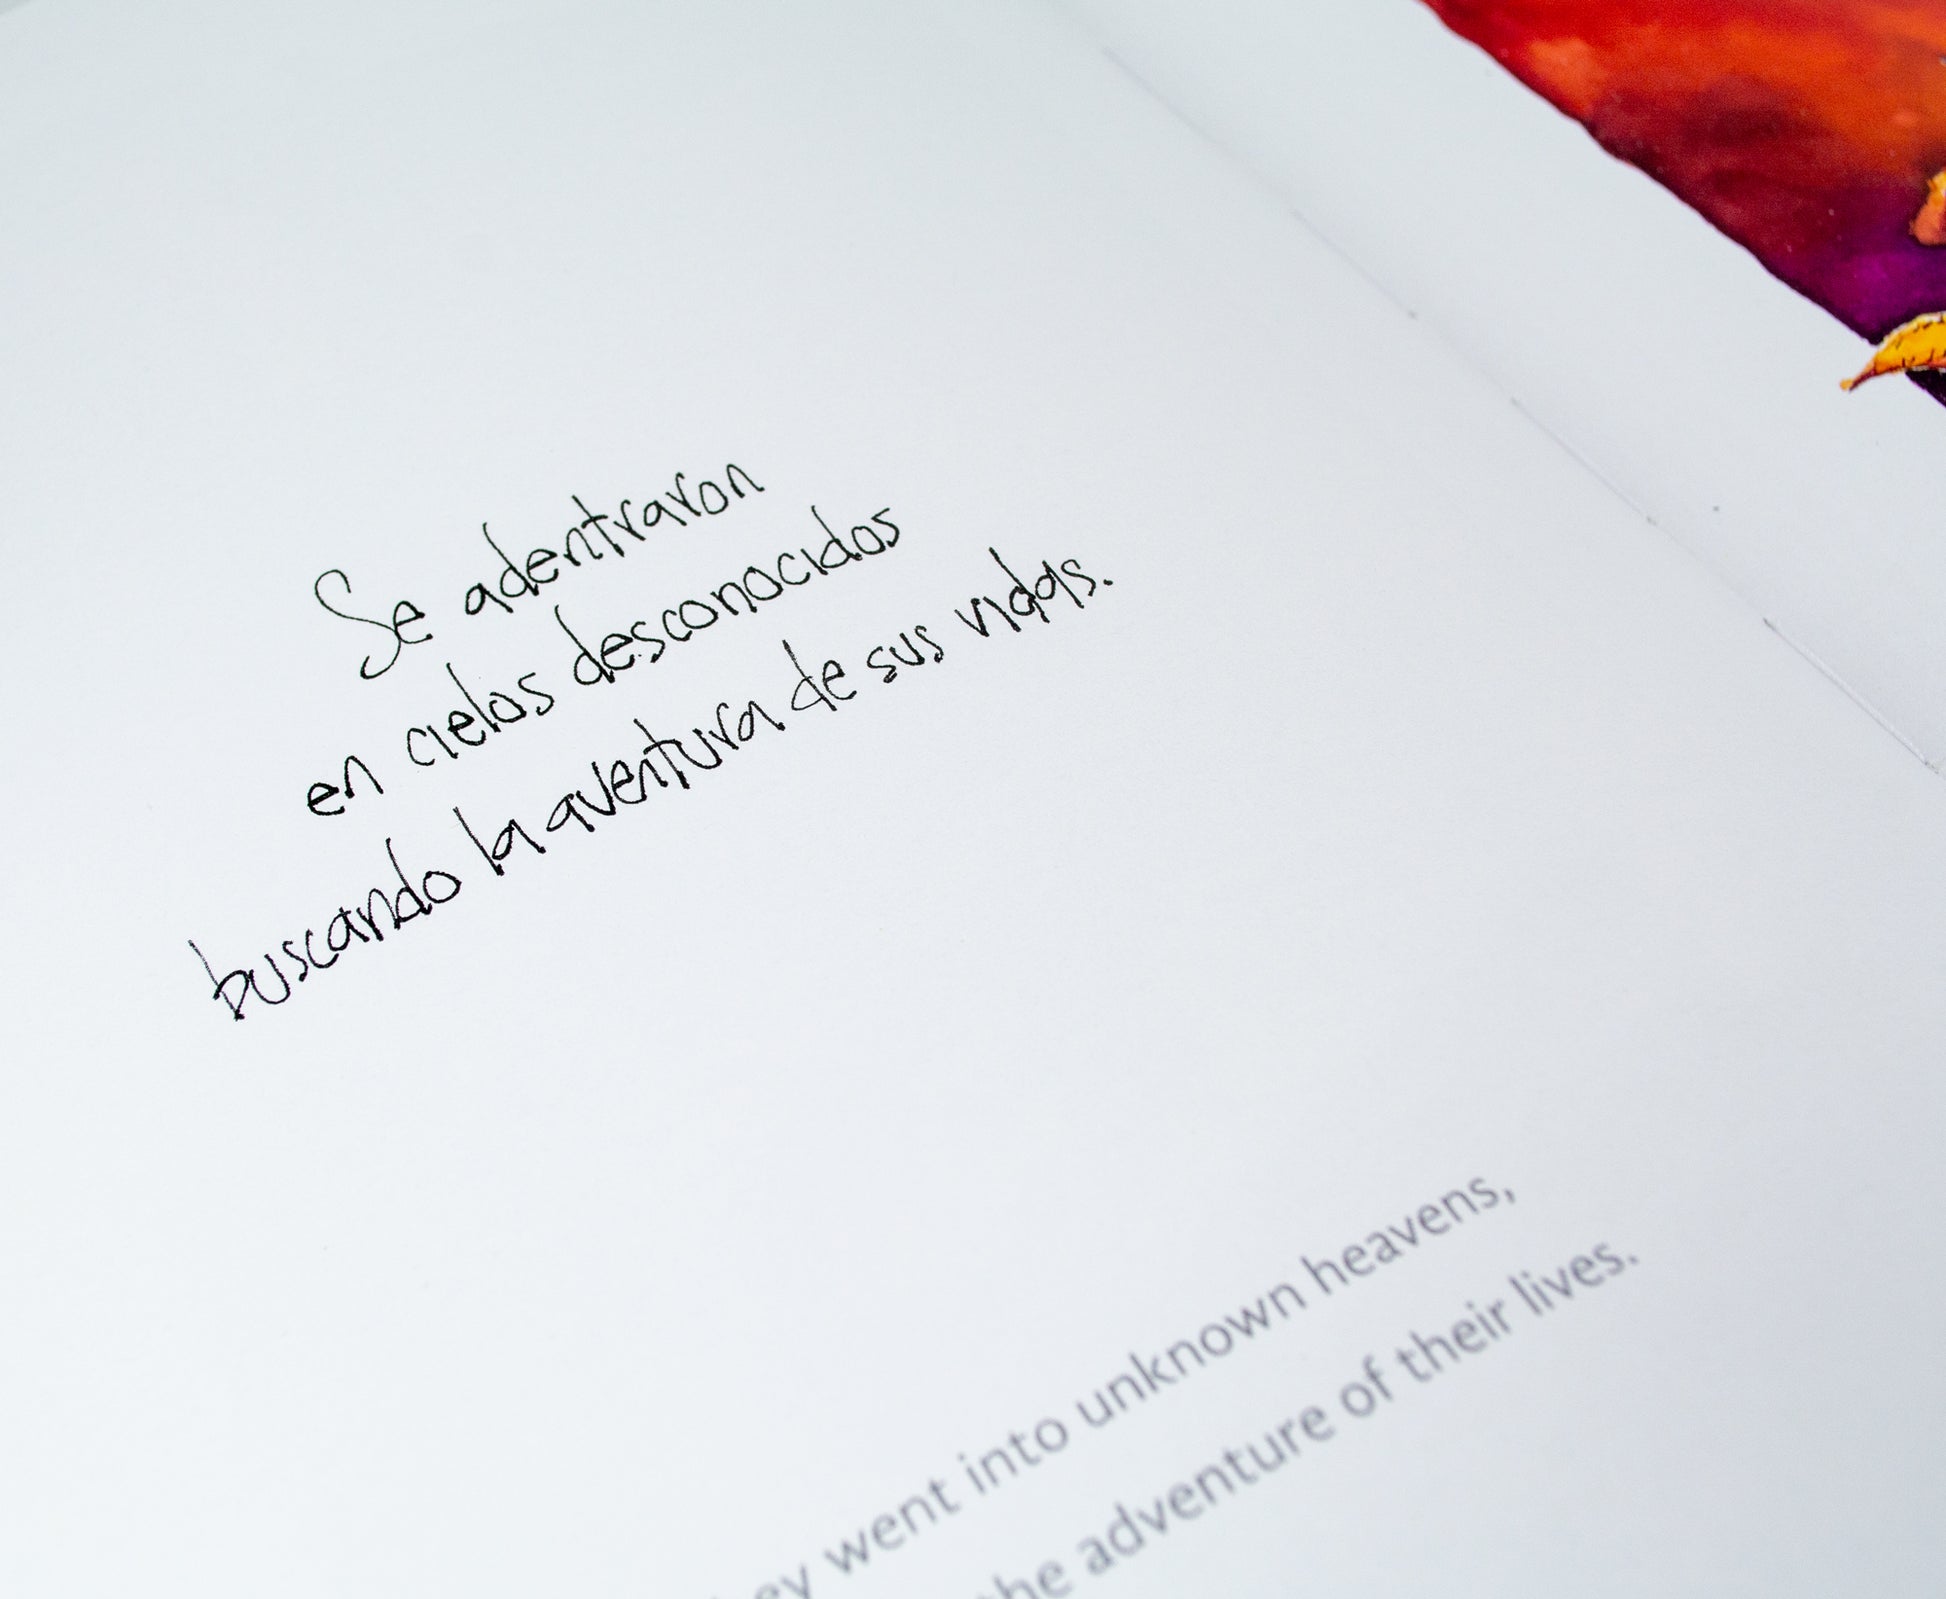 Se adentraron
en cielos desconocidos
buscando la aventura de sus vidas.
went into unknown heavens,
the adventure of their lives.